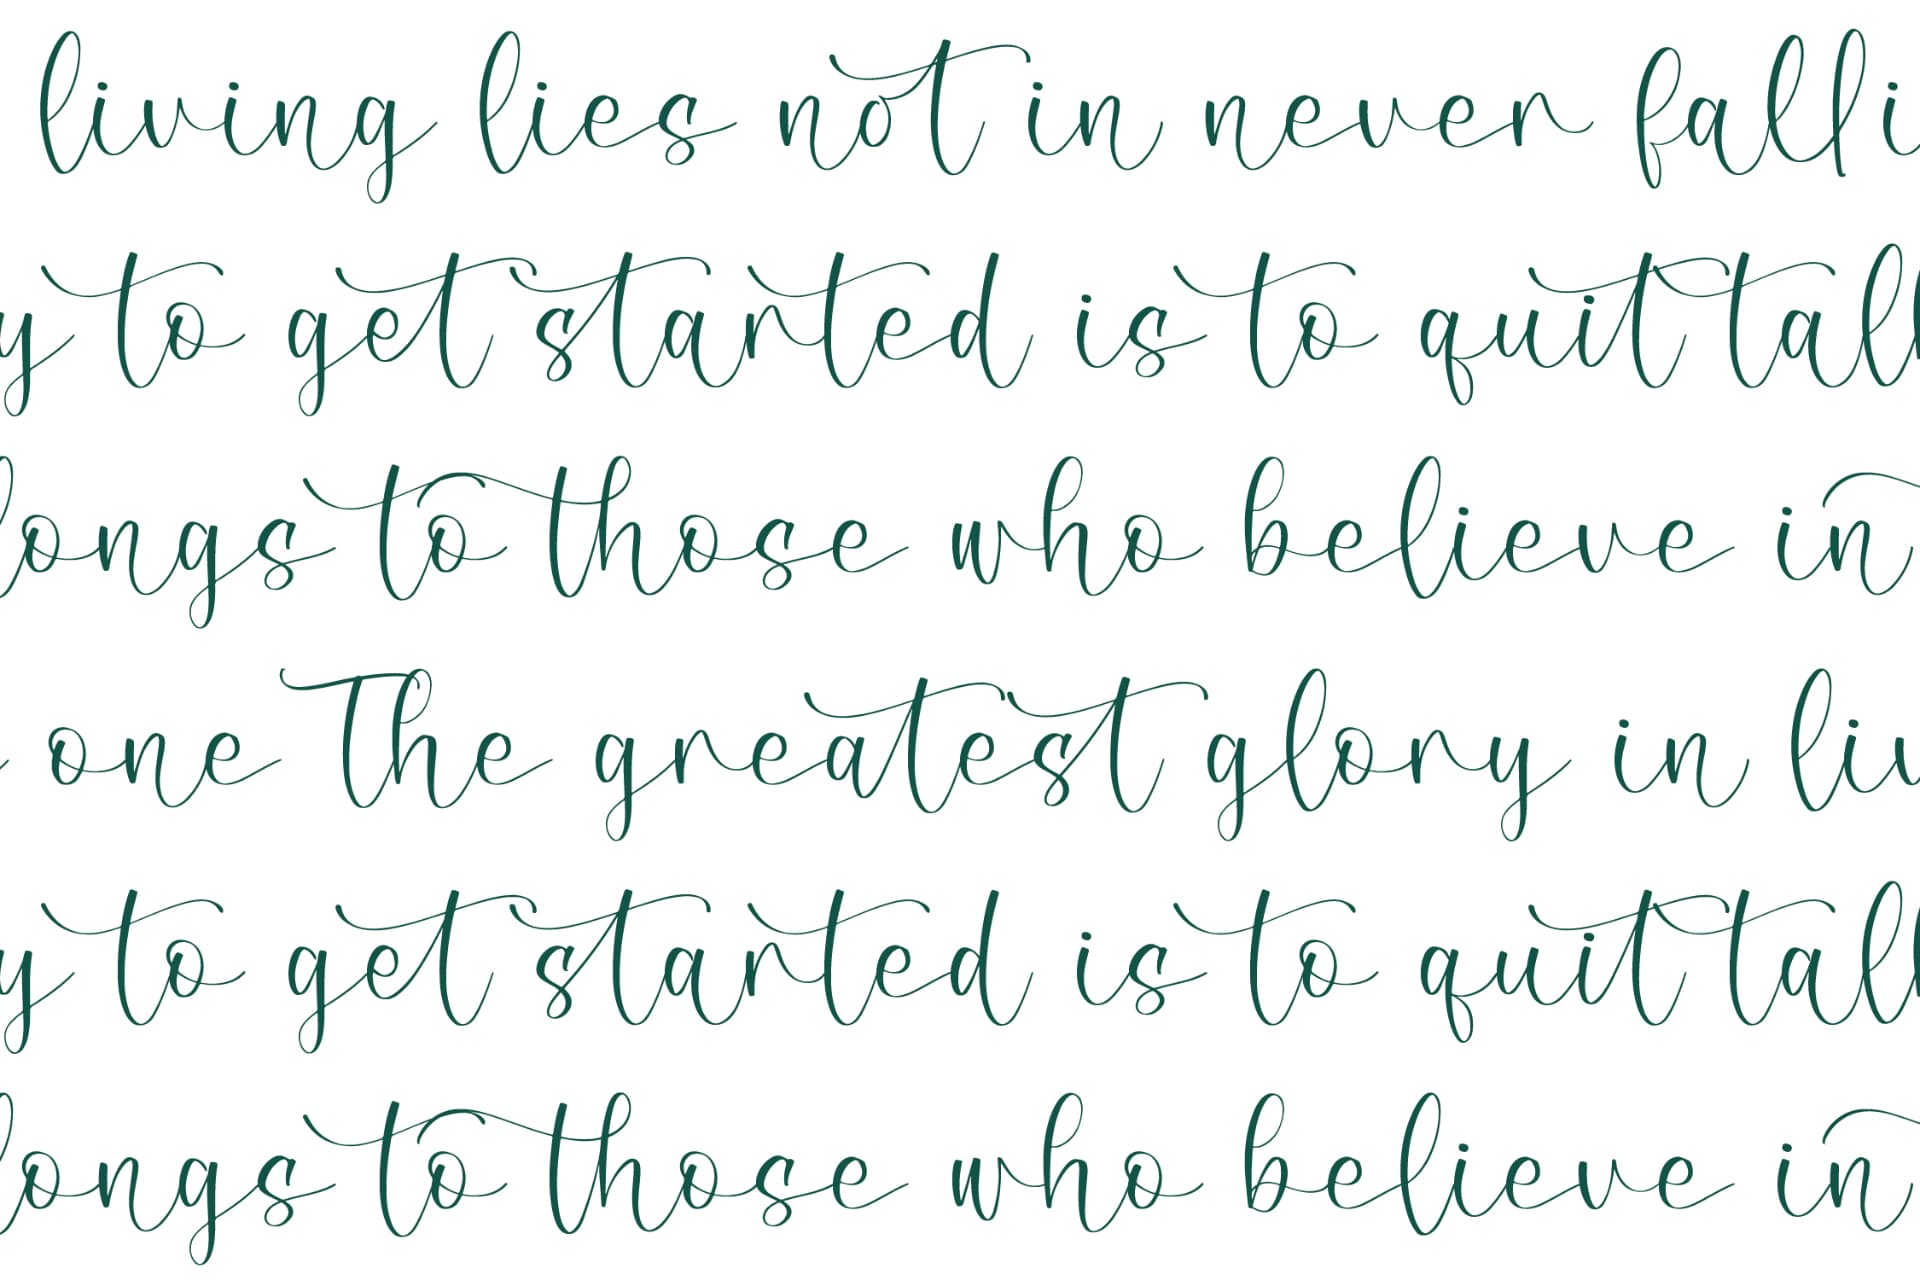 living lies not in never falli
y to get started is to quit tall
longs to those who believe in
one The greatest glory in liv
y to get started is to quit tall
longs to those who believe in